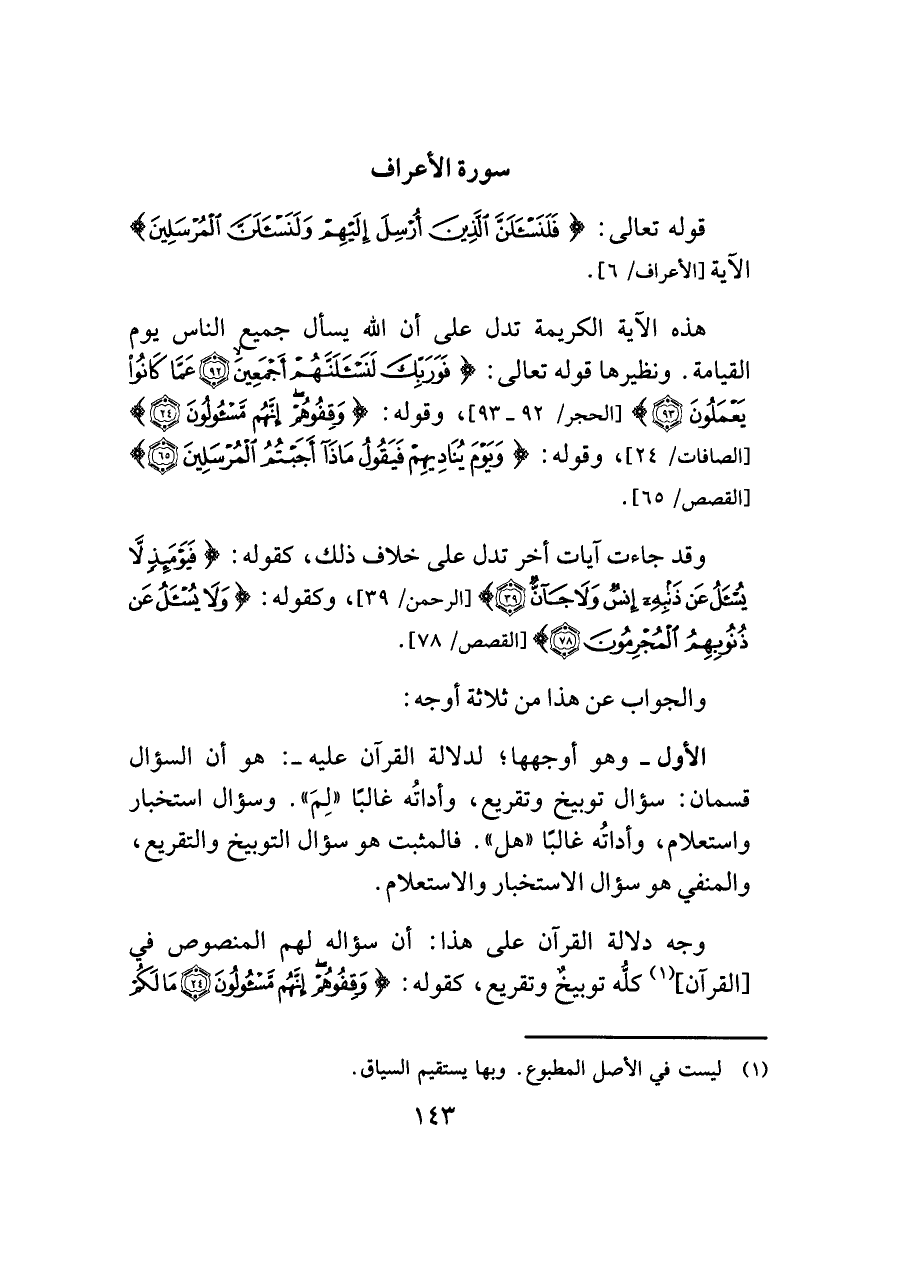 سورة الأعراف
قوله تعالى: ﴿ فَلَنَسْـَٔلَنَّ ٱلَّذِينَ أُرْسِلَ إِلَيْهِمْ وَلَنَسْـَٔلَنَّ ٱلْمُرْسَلِينَ ﴾
الآية [الأعراف/ ٦].
هذه الآية الكريمة تدل على أن الله يسأل جميع الناس يوم
القيامة. ونظيرها قوله تعالى: ﴿ فَوَرَبِّكَ لَنَسْـَٔلَنَّهُمْ أَجْمَعِينَ ۙ ٩٢ عَمَّا كَانُوا۟
يَعْمَلُونَ ٩٣ ﴾ [الحجر/ ٩٢ ـ ٩٣]، وقوله: ﴿ وَقِفُوهُمْ ۖ إِنَّهُم مَّسْـُٔولُونَ ٢٤ ﴾
[الصافات/ ٢٤]، وقوله: ﴿ وَيَوْمَ يُنَادِيهِمْ فَيَقُولُ مَاذَآ أَجَبْتُمُ ٱلْمُرْسَلِينَ ٦٥ ﴾
[القصص/ ٦٥].
وقد جاءت آيات أخر تدل على خلاف ذلك، كقوله: ﴿ فَيَوْمَئِذٍ لَّا
يُسْـَٔلُ عَن ذَنۢبِهِۦٓ إِنسٌ وَلَا جَآنٌّ ٣٩ ﴾ [الرحمن/ ٣٩]، وكقوله: ﴿ وَلَا يُسْـَٔلُ عَن
ذُنُوبِهِمُ ٱلْمُجْرِمُونَ ٧٨ ﴾ [القصص/ ٧٨].
والجواب عن هذا من ثلاثة أوجه:
الأول ـ وهو أوجهها؛ لدلالة القرآن عليه ـ: هو أن السؤال
قسمان: سؤال توبيخ وتقريع، وأداتُه غالبًا «لِمَ». وسؤال استخبار
واستعلام، وأداتُه غالبًا «هل». فالمثبت هو سؤال التوبيخ والتقريع،
والمنفي هو سؤال الاستخبار والاستعلام.
وجه دلالة القرآن على هذا: أن سؤاله لهم المنصوص في
[القرآن](١) كلُّه توبيخٌ وتقريع، كقوله: ﴿ وَقِفُوهُمْ ۖ إِنَّهُم مَّسْـُٔولُونَ ٢٤ مَا لَكُمْ
(١) ليست في الأصل المطبوع. وبها يستقيم السياق.
١٤٣